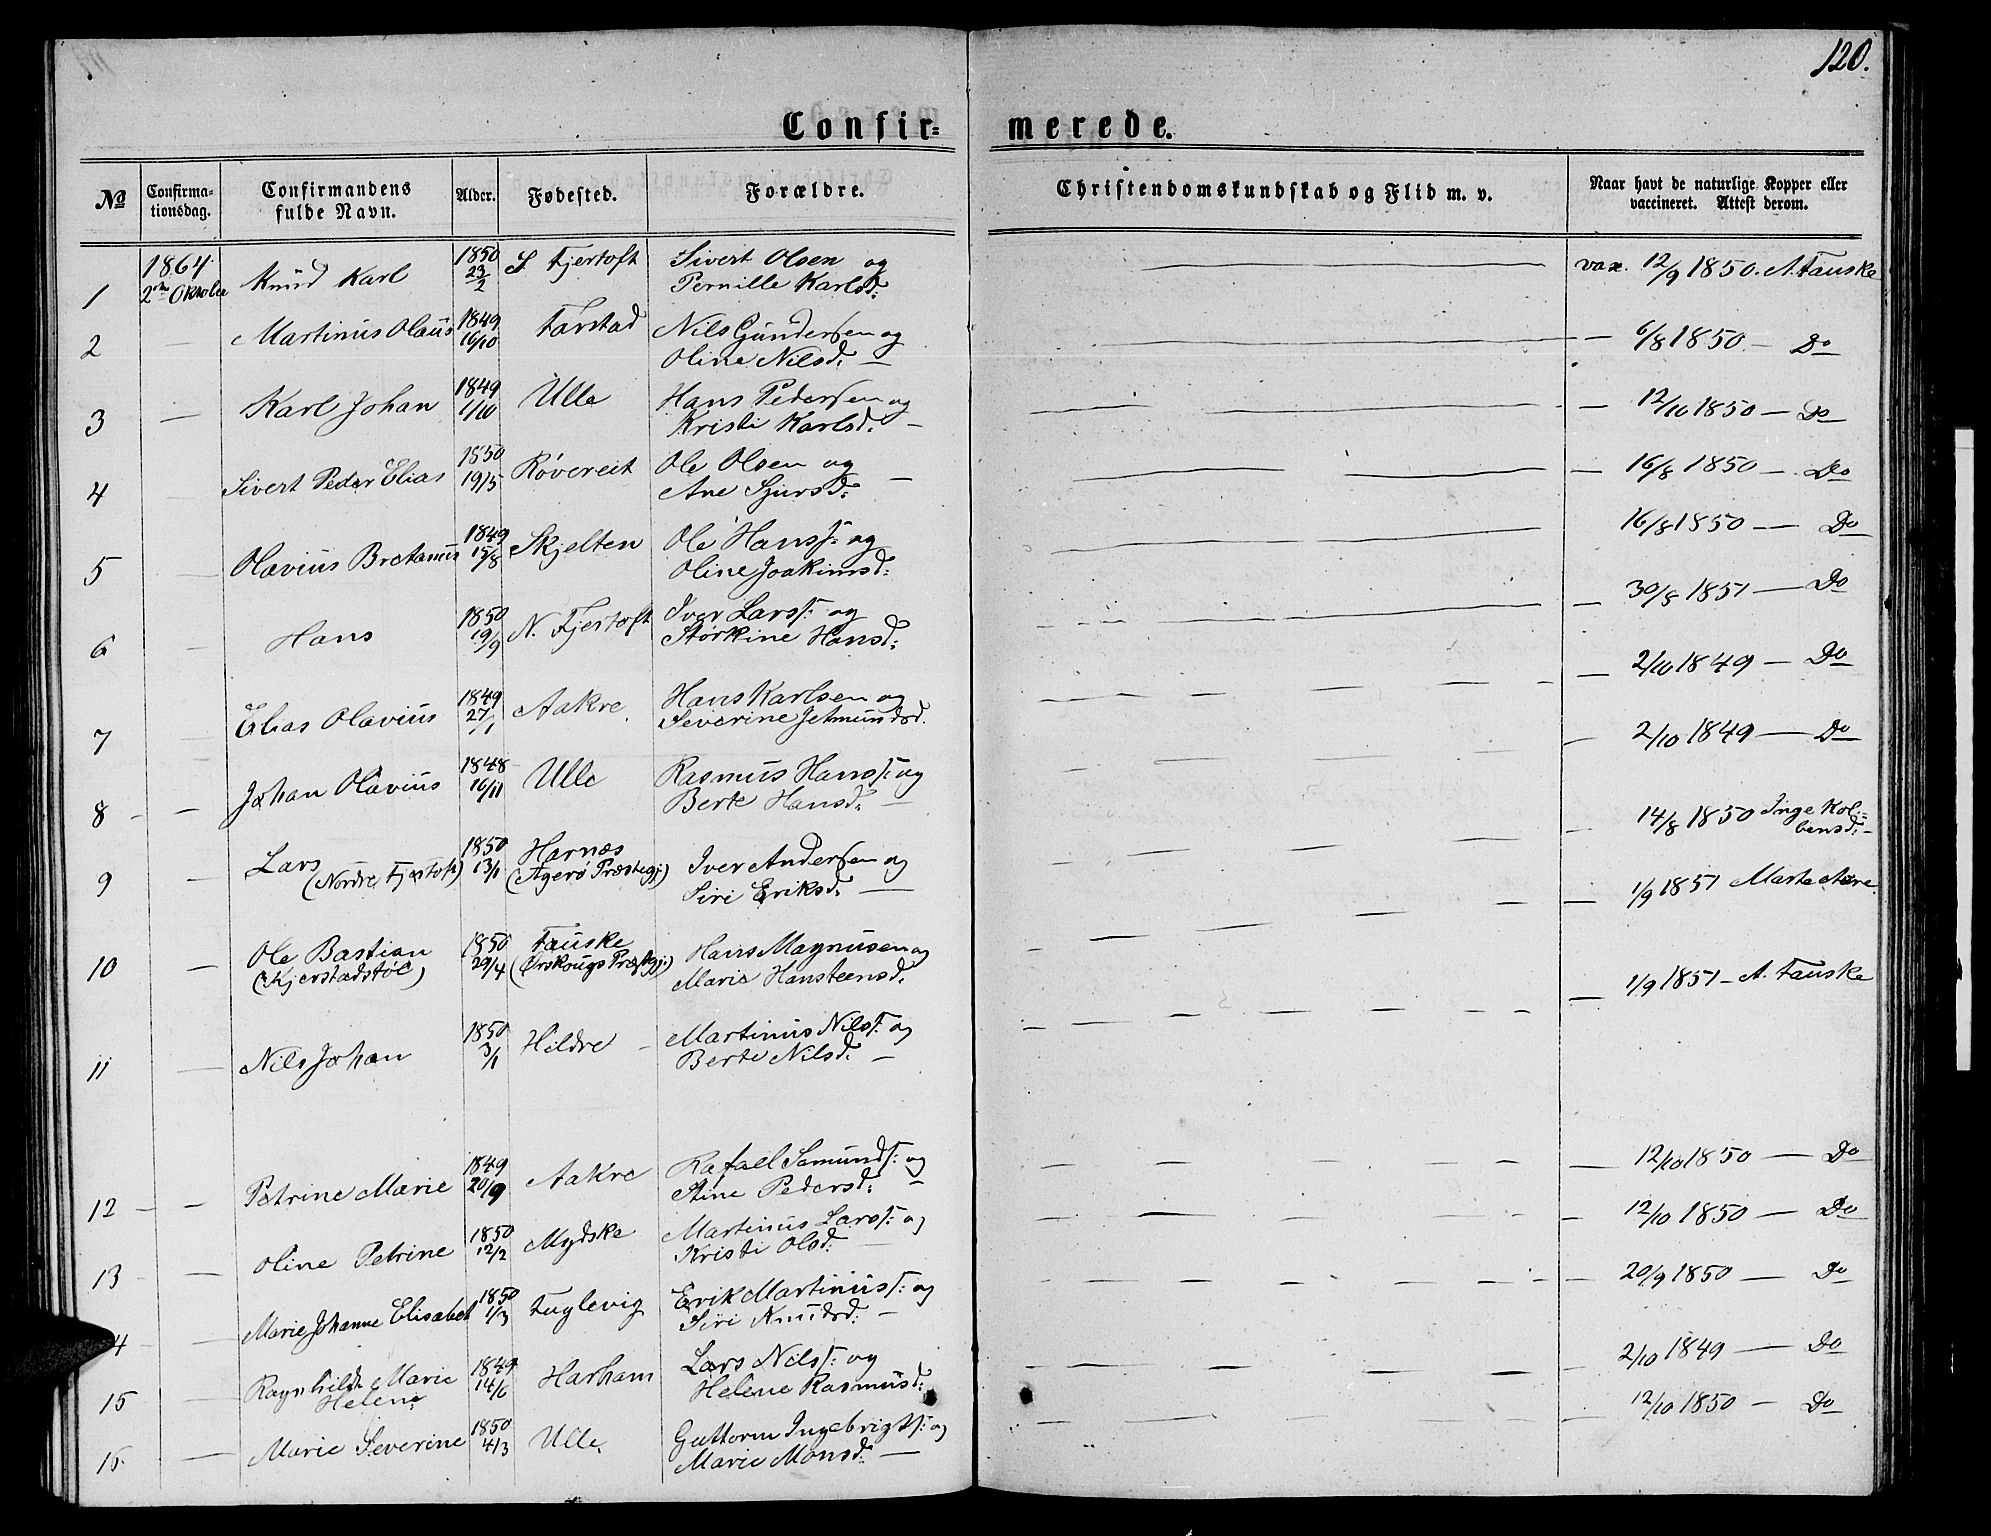 120.
Confir=
merede.
No
Confirma-
tionsdag.
Confirmandens
fulde Navn.
Alder.
Fødested.
Forældre.
Christendomskundskab og Flid m. v.
Naar havt de naturlige Kopper eller
vaccineret. Attest derom.
1 1864 2den Oktober Knud Karl 1850 23/2 S. Fjertoft Sivert Olsen og
Pernille Karlsd: vax. 12/9 1850. A. Fauske
2 — Martinus Olaus 1849 16/10 Farstad Nils Gundersen og
Oline Nilsd: — — 6/8 1850 — Do
3 — Karl Johan 1849 1/10 Ulle Hans Pedersen og
Kristi Karlsd: — — 12/10 1850 — Do
4 — Sivert Peder Elias 1850 19/5 Røvereit Ole Olsen og
Ane Sjursd: — — 16/8 1850 — Do
5 — Olavius Bretanus 1849 15/8 Skjelten Ole Hanss: og
Oline Joakimsd: 16/8 1850 — Do
6 — Hans 1850 19/9 N. Fjertoft Iver Larss: og
Størkine Hansd: — 30/8 1851 — Do
7 — Elias Olavius 1849 27/1 Aakre Hans Karlsen og
Severine Jetmundsd. — 2/10 1849 — Do
8 — Johan Olavius 1848 16/11 Ulle Rasmus Hanss: og
Berte Hansd: — — 2/10 1849 — Do
9 Lars
(Nordre Fjertoft) 1850 13/1 Harnæs
(Agerø Præstegj:) Iver Andersen og
Siri Eriksd: — — 14/8 1850 Inge Kol-
bensd: —
10 — Ole Bastian
(Kjerstadstøl) 1850 29/4 Fauske
(Ørskougs Præstegj:) Hans Magnusen og
Marie Hansteensd: — 1/9 1851 Marte Aere
11 — Nils Johan 1850 3/1 Hildre — Martinus Nilss: og
Berte Nilsd: — — 1/9 1851 — A. Fauske
12 — Petrine Marie 1849 20/9 Aakre Rafael Samunds: og
Stine Pedersd: — — 12/10 1850 — Do
13 — Oline Petrine 1850 12/2 Mydske Martinus Larss: og
Kristi Olsd: — — 12/10 1850 — Do
4 — Marie Johanne Elisabet 1850 1/3 Fuglevig Erik Martinuss: og
Siri Knudsd: — — 20/9 1850 — Do
15 — Ragnhilde Marie
Helene 1849 14/6 Harham Lars Nilss: og
Helene Rasmusd: — 2/10 1849 — Do
16 — Marie Severine 1850 4/3 Ulle Guttorm Ingebrigts: og
Marie Monsd: — — 12/10 1850 — Do